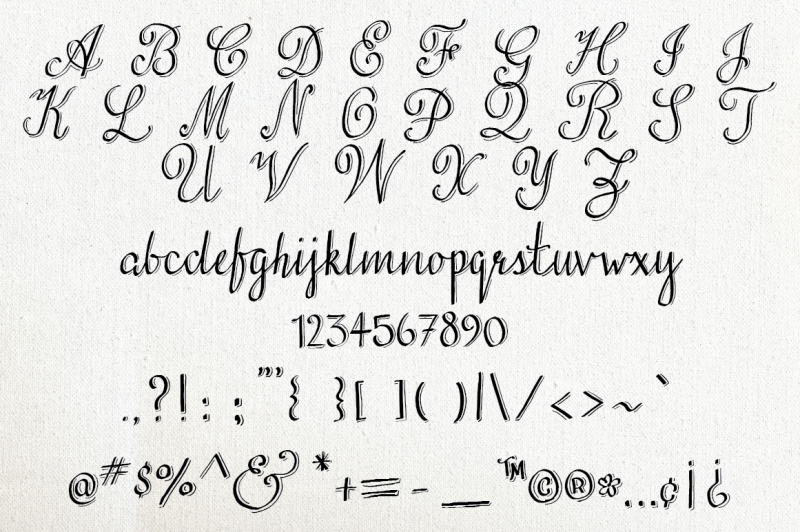 A B C D E F G H I J
K L M N O P Q R S T
U V W X Y Z
abcdefghijklmnopqrstuvwxy
1234567890
.,?!:;"'{ }[ ]( )|\/<>~`
@#$%^&*+=-_™©®*...¢¡¿